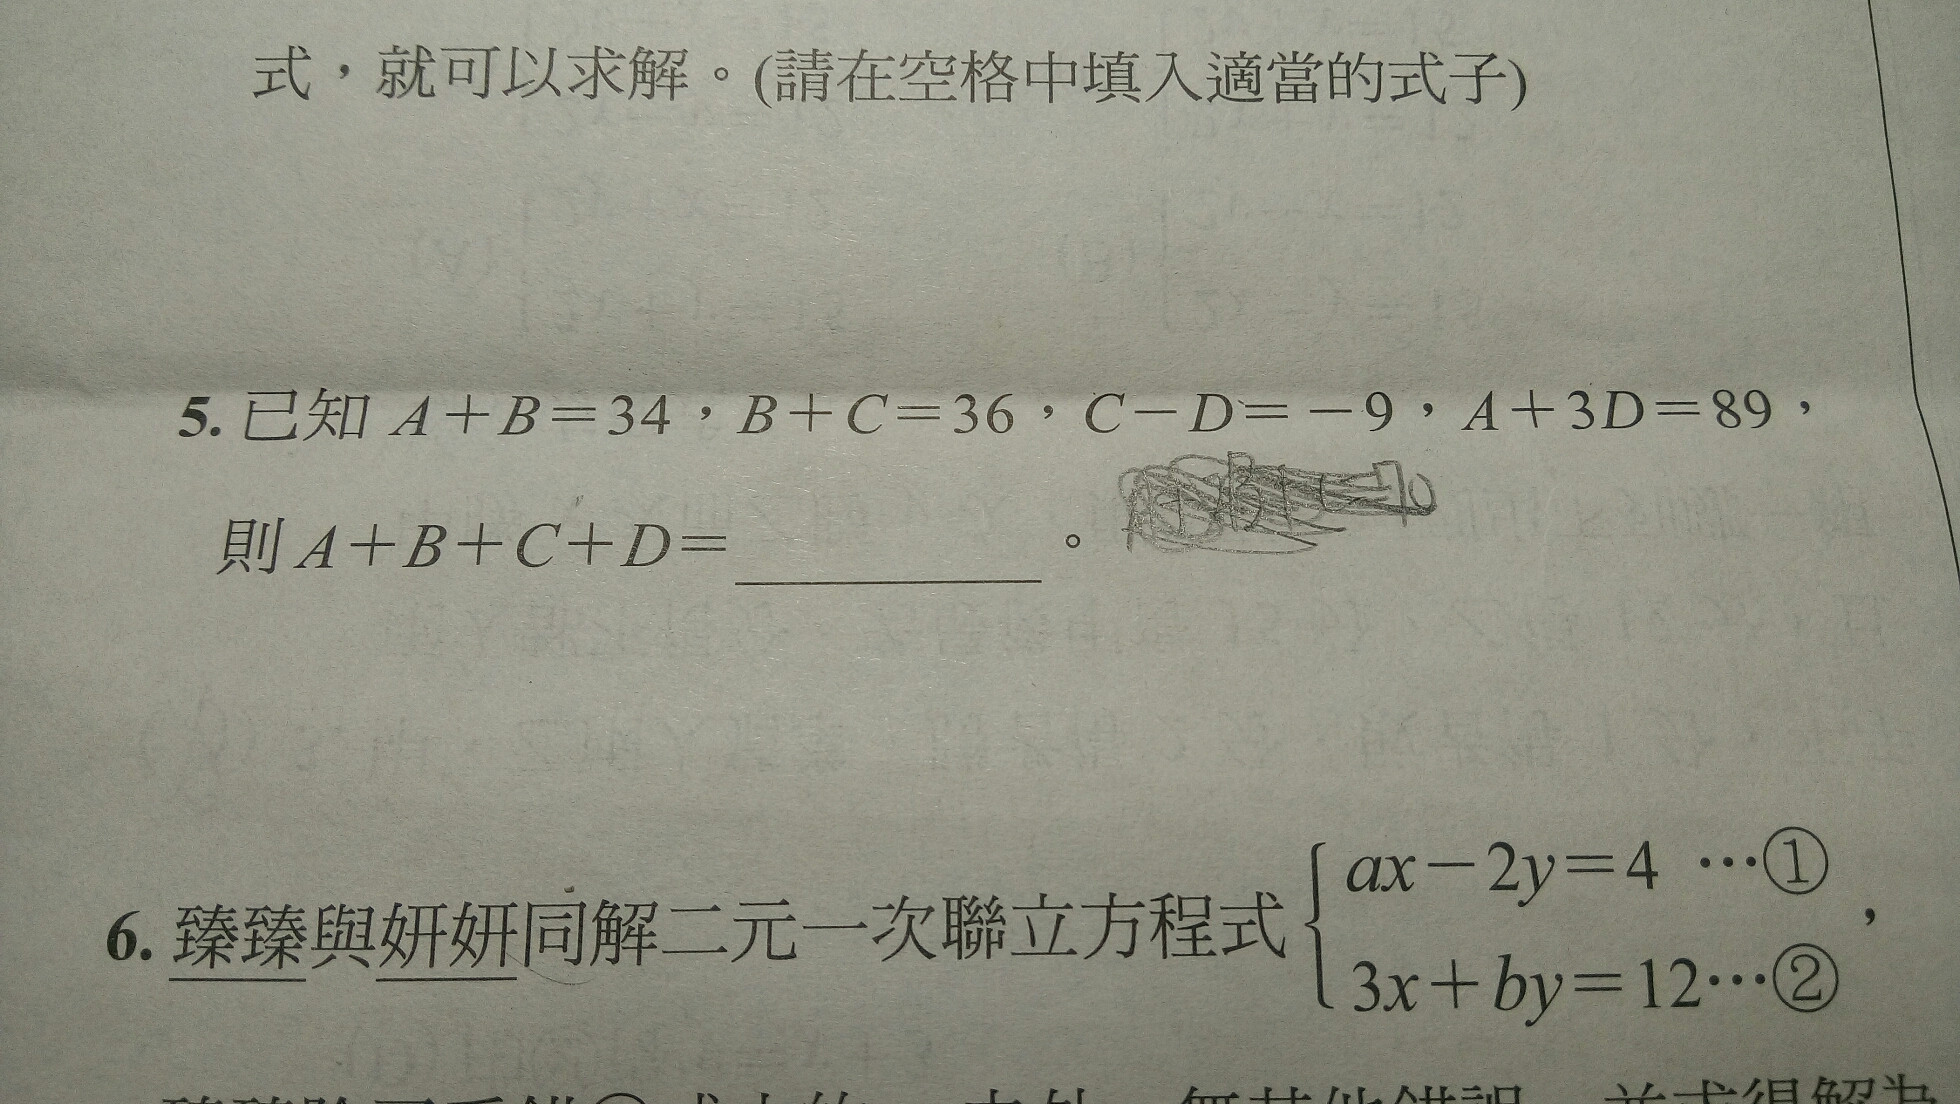 式，就可以求解。(請在空格中填入適當的式子)
5. 已知 A＋B＝34，B＋C＝36，C－D＝－9，A＋3D＝89，
則 A＋B＋C＋D＝＿＿＿＿＿。
6. 臻臻與妍妍同解二元一次聯立方程式
ax－2y＝4 …①
3x＋by＝12…②，